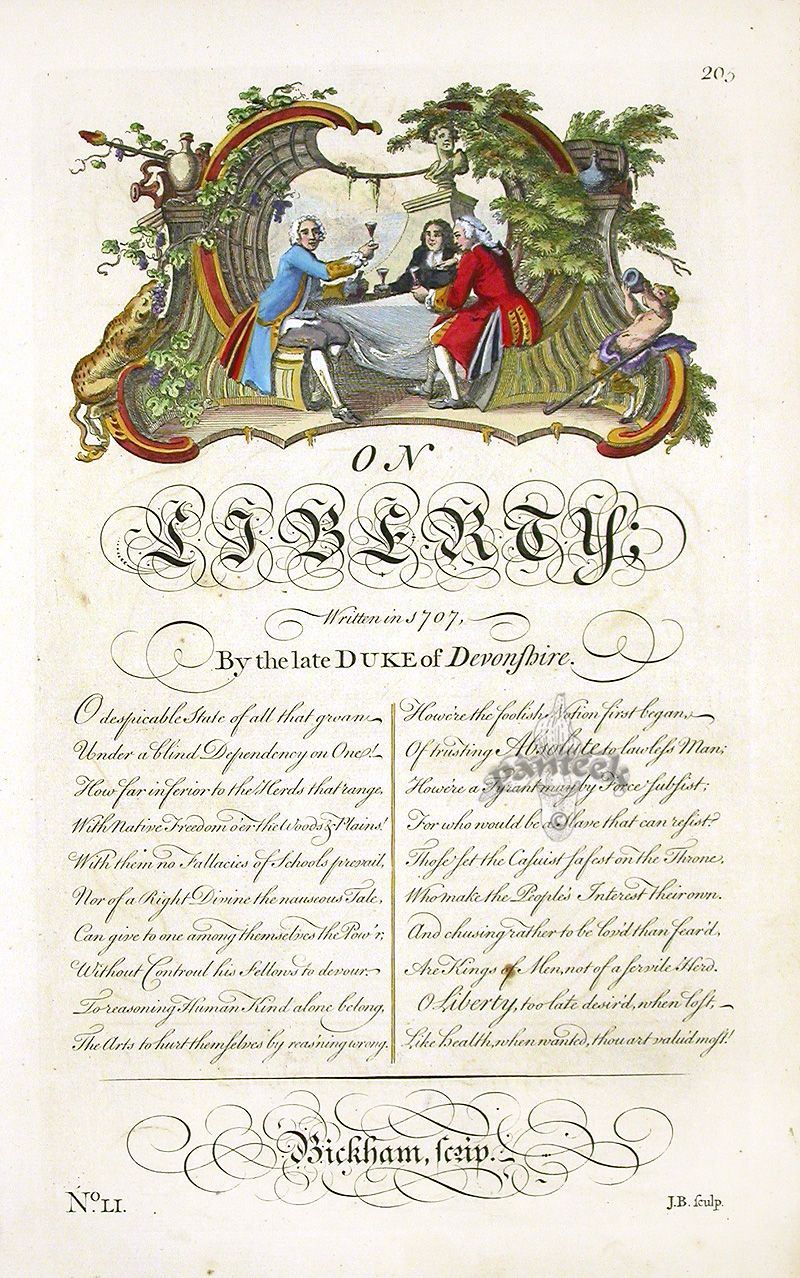 205
ON
LIBERTY;
Written in 1707,
By the late DUKE of Devonſhire.
O deſpicable State of all that groan
Under a blind Dependency on One!
How far inferior to the Herds that range,
With Native Freedom o'er the Woods & Plains!
With them no Fallacies of Schools prevail,
Nor of a Right Divine the nauseous Tale,
Can give to one among themſelves the Pow'r,
Without Controul his Fellows to devour.
To reasoning Human Kind alone belong,
The Arts to hurt themſelves by reas'ning wrong.
Howe're the fooliſh Notion first began,
Of trusting Absolute to lawleſs Man;
Howe're a Tyrant may by Force ſubſiſt;
For who would be a Slave that can reſiſt?
Thoſe ſet the Caſuist ſafeſt on the Throne,
Who make the People's Interest their own.
And chusing rather to be lov'd than fear'd,
Are Kings of Men, not of a ſervile Herd.
O Liberty, too late desir'd, when loſt,
Like Health, when wanted, thou art valu'd moſt!
Bickham, ſcrip.
No. LI.
J.B. ſculp.
panteek
©